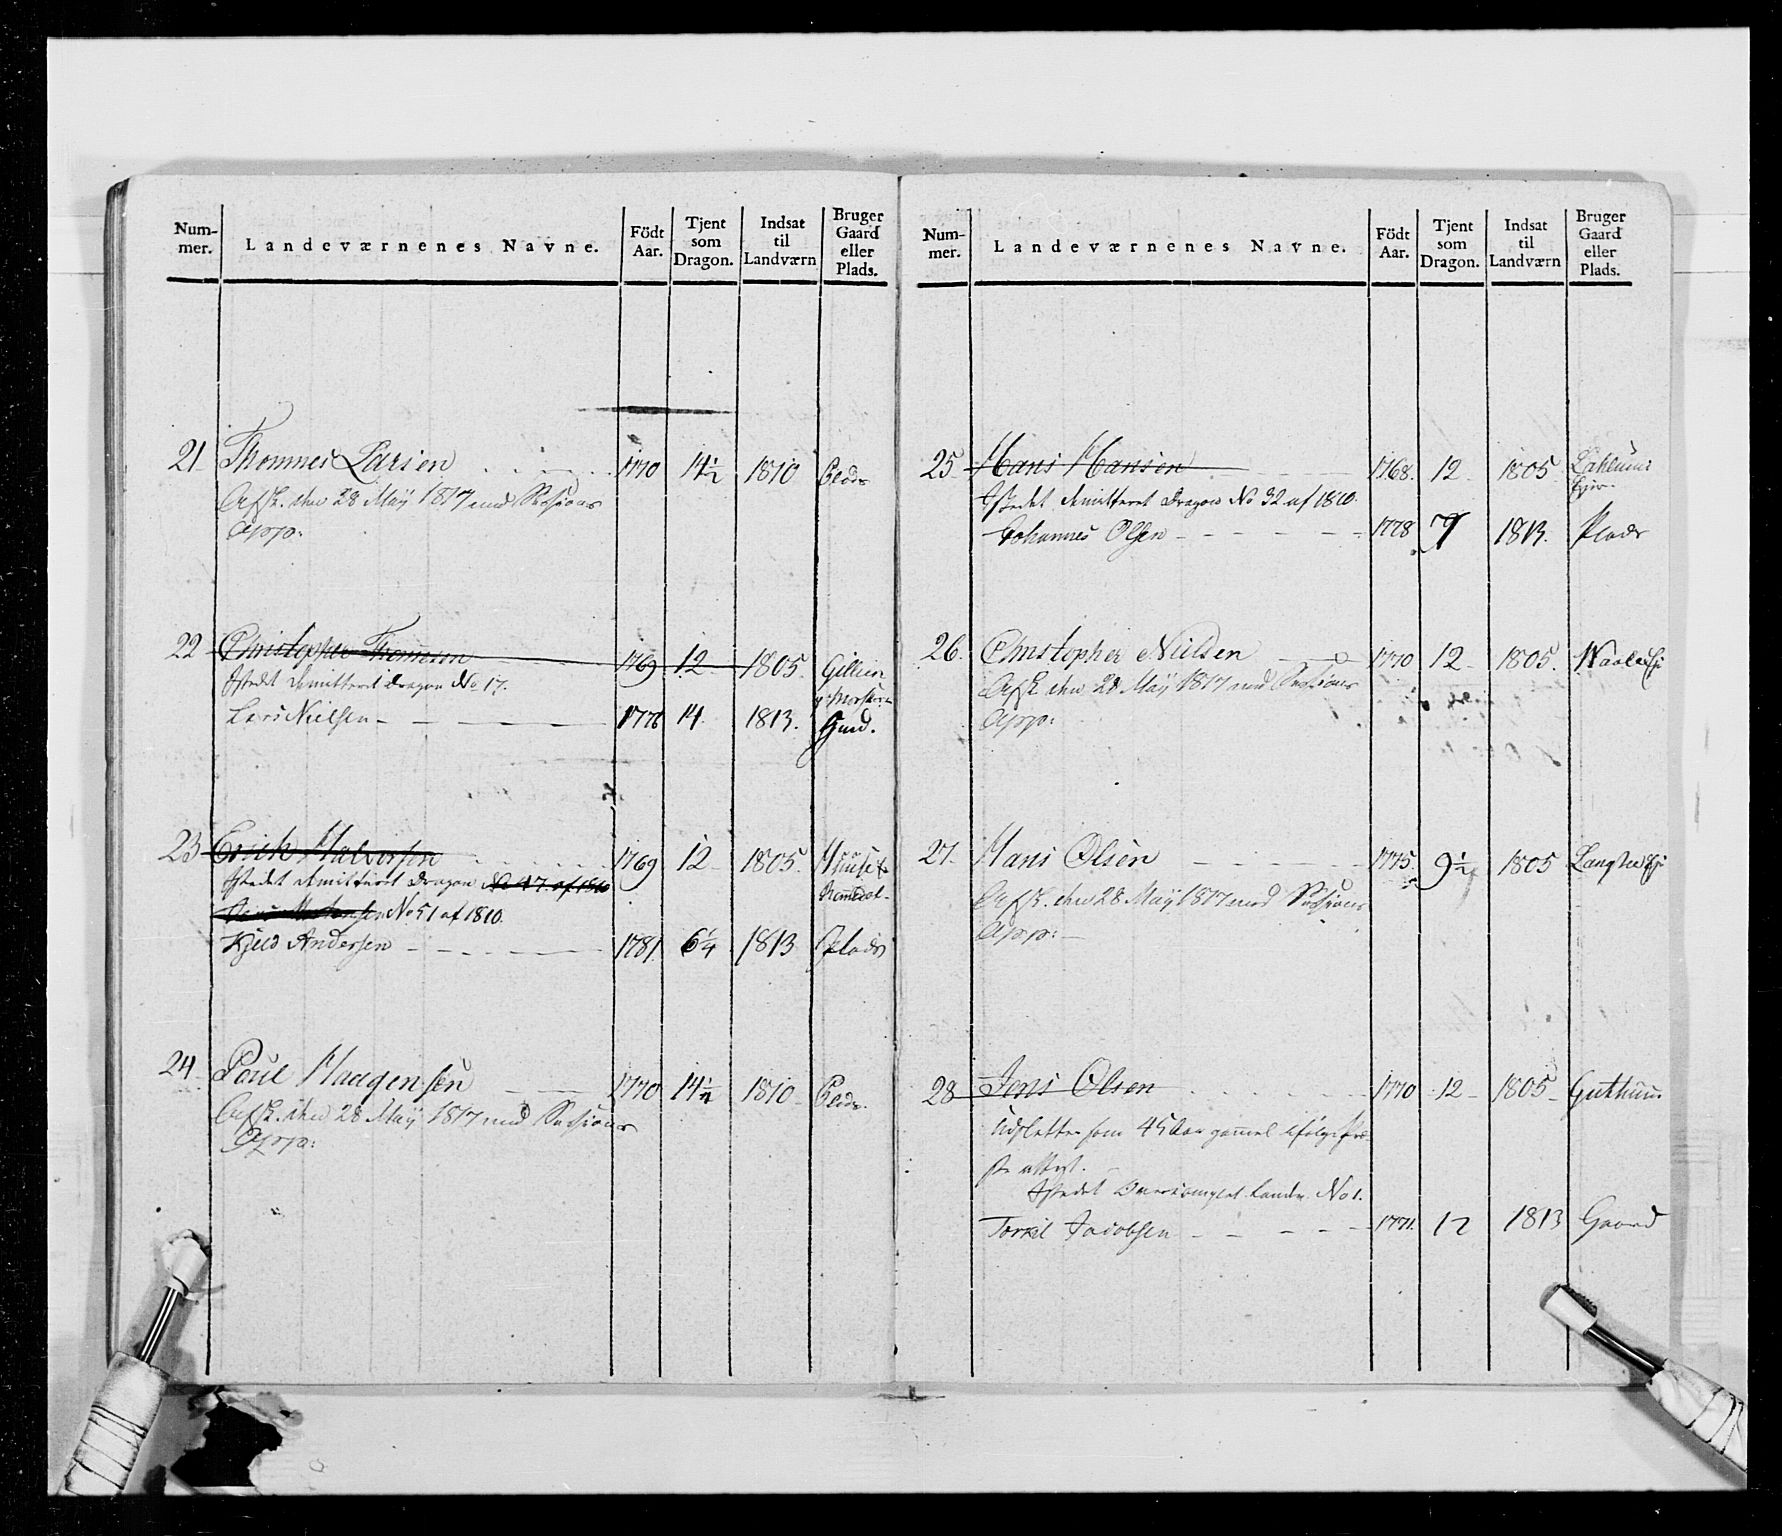 Num-mer. Landeværnenes Navne. Födt Aar. Tjent som Dragon. Indsat til Landværn Bruger Gaard eller Plads.
21 Thomnes Larsen 1770 14½ 1810 Plads
Afsk. den 28 Maÿ 1817 med Sessions
App:
22 Christopher Thomesen 1769 12 1805
Istedet demitteret Dragon No 17.
Lars Nielsen 1776 14 1813. Gaard.
23 Erich Halvorsen 1769 12 1805
Istedet demitteret Dragon No 47 af 1810
No 51 af 1810.
Kjeld Andersen 1781 6¼ 1813 Plads
24 Poul Haagensen 1770 14½ 1810 Plads
Afsk. den 28 Maÿ 1817 med Sessions
App:
Num-mer. Landeværnenes Navne. Födt Aar. Tjent som Dragon. Indsat til Landværn Bruger Gaard eller Plads.
25 Hans Hansen 1768. 12 1805
Istedet demitteret Dragon No 32 af 1810.
Johannes Olsen 1778 7 1813. Plads
26. Christopher Nielsen 1770 12 1805.
Afsk. den 28 Maÿ 1817 med Sessions
App:
27. Hans Olsen 1775 9½ 1805
Afsk. den 28 Maÿ 1817 med Sessions
App:
28 Jens Olsen 1770 12 1805
Udslettes som 45 Aar gammel ifølge
attest.
Istedet Overcomplet Landv. No 1.
Torkil Jacobsen 1771. 12 1813 Gaard